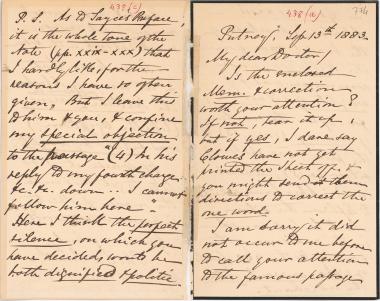 438 (a)
734
Putney, Sep. 13th 1883.
My dear Doctor,
Is the enclosed
Mem. & correction
worth your attention?
If not, tear it up,
but if yes, I dare say
Clowes have not yet
printed the Sheet &
you might send them
directions to correct the
one word.
I am sorry it did
not occur to me before
to call your attention
to the famous passage
438 (c)
P.S. As to Sayce's Preface,
it is the whole tone of the
Note (pp. xxix-xxx) that
I hardly like, for the
reasons I have so often
given, But I leave this
to him & you, & confine
my special objection
to the passage "(4) In his
reply to my fourth charge
&c. &c. down... I cannot
follow him here"
Here I think the perfect
silence, on which you
have decided, wd. be
both dignified & politic.